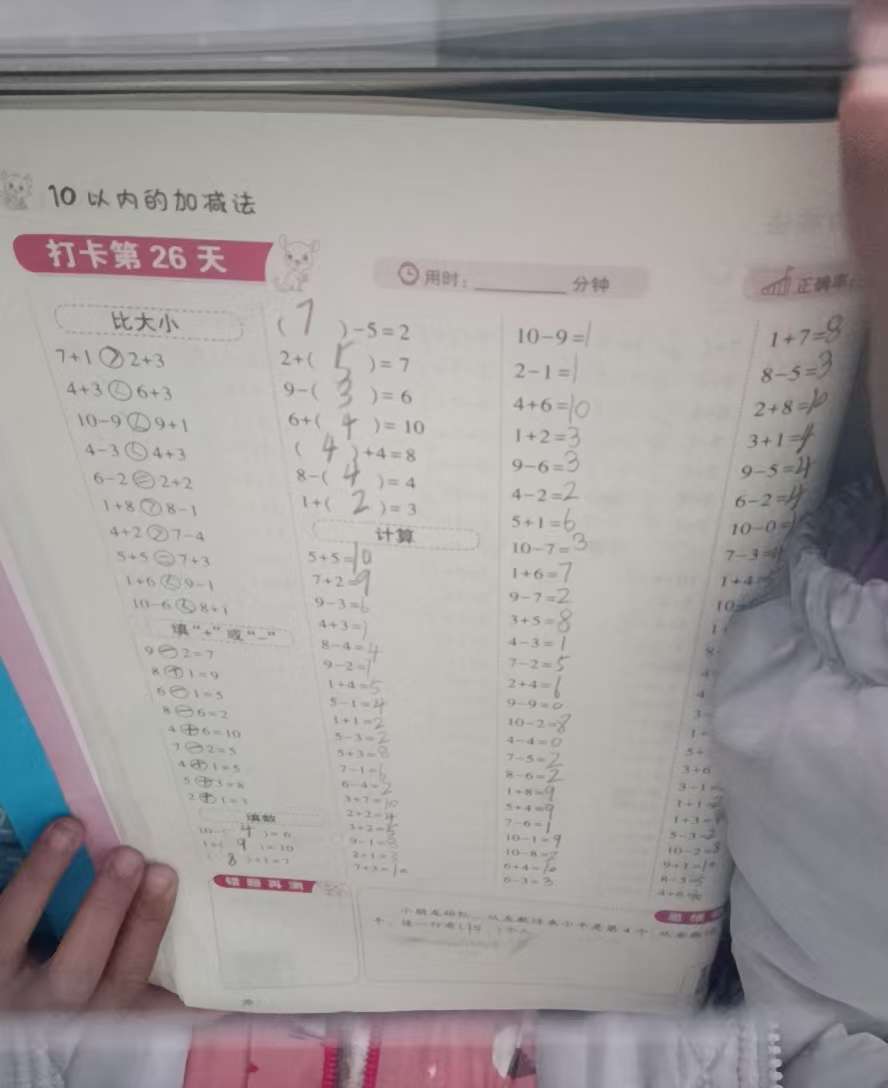 10以内的加减法
打卡第 26 天
用时: 分钟
正确率:
比大小
7+1 > 2+3
4+3 < 6+3
10-9 < 9+1
4-3 < 4+3
6-2 = 2+2
1+8 > 8-1
4+2 > 7-4
5+5 = 7+3
1+6 < 9-1
10-6 < 8+1
填“+”或“-”
9 - 2=7
8 + 1=9
6 - 1=5
8 - 6=2
4 + 6=10
7 - 2=5
4 + 1=5
5 + 3=8
2 + 1=3
填数
10-( 4 )=6
1+( 9 )=10
( 7 )-5=2
2+( 5 )=7
9-( 3 )=6
6+( 4 )=10
( 4 )+4=8
8-( 4 )=4
1+( 2 )=3
计算
5+5=10
7+2=9
9-3=6
4+3=7
8-4=4
9-2=7
1+4=5
5-1=4
1+1=2
5-3=2
5+3=8
7-1=6
6-4=2
3+7=10
2+2=4
3+2=5
2+1=3
7+3=10
10-9=1
2-1=1
4+6=10
1+2=3
9-6=3
4-2=2
5+1=6
10-7=3
1+6=7
9-7=2
3+5=8
4-3=1
7-2=5
2+4=6
9-9=0
10-2=8
4-4=0
7-5=2
8-6=2
1+8=9
5+4=9
7-6=1
10-1=9
10-8=2
6+4=10
6-3=3
1+7=8
8-5=3
2+8=10
3+1=4
9-5=4
6-2=4
10-0=
7-3=4
1+4=
3+6
3-1=
1+1=2
1+3=
5-3=2
10-2=8
9+1=10
8-3=5
错题再测